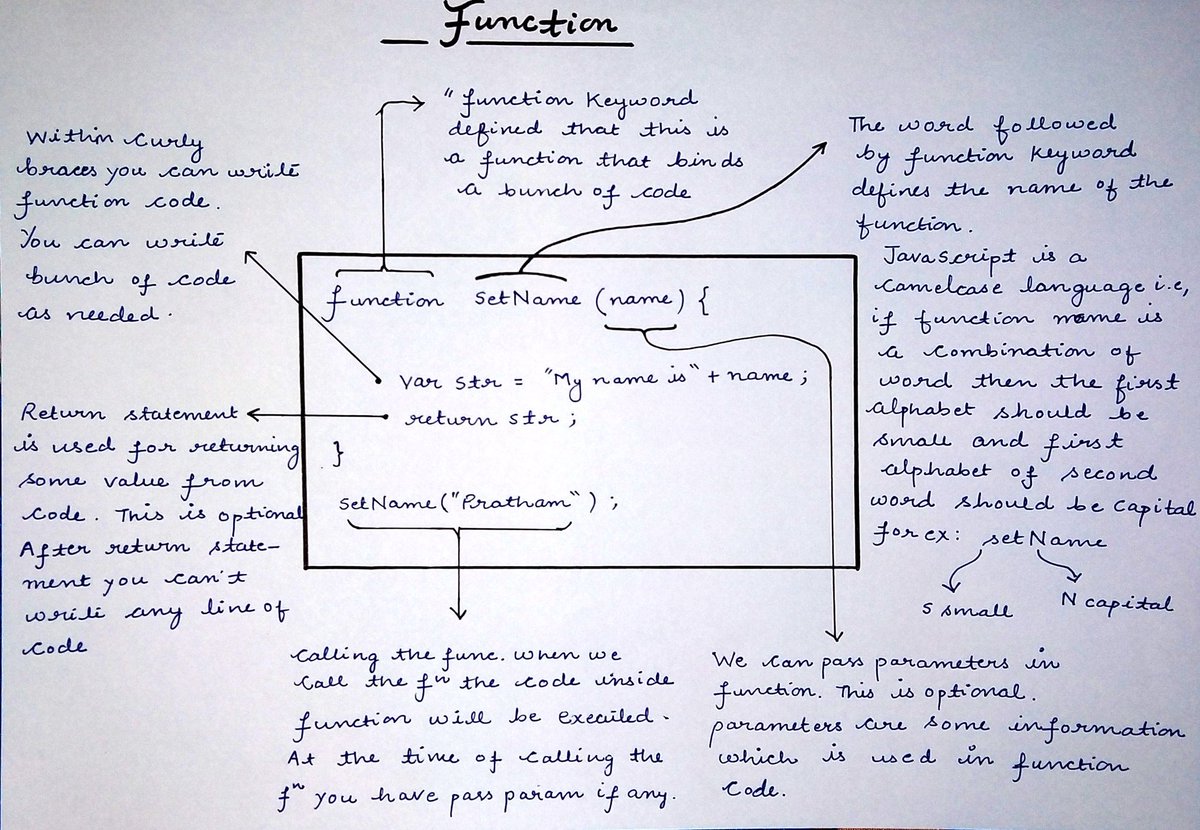 Function
" function Keyword
defined that this is
a function that binds
a bunch of code
Within Curly
braces you can write
function code.
You can write
bunch of code
as needed.
The word followed
by function Keyword
defines the name of the
function.
JavaScript is a
Camelcase language i.e,
if function name is
a combination of
word then the first
alphabet should be
small and first
alphabet of second
word should be capital
for ex: setName
s small
N capital
function setName (name) {
var str = "My name is" + name;
return str;
}
setName("Pratham");
Return statement
is used for returning
some value from
code. This is optional
After return state-
ment you can't
write any line of
code
calling the func. when we
call the fⁿ the code inside
function will be executed.
At the time of calling the
fⁿ you have pass param if any.
We can pass parameters in
function. This is optional.
parameters are some information
which is used in function
code.